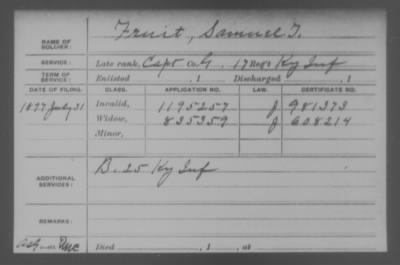 NAME OF SOLDIER: Fruit, Samuel T.
SERVICE: Late rank, Capt Co. G, 17 Reg't Ky Inf
TERM OF SERVICE: Enlisted , 1 Discharged , 1
DATE OF FILING. CLASS. APPLICATION NO. LAW. CERTIFICATE NO.
1897 July 31 Invalid, 1195257 J 981373
Widow, 835359 J 608214
Minor,
ADDITIONAL SERVICES: B. 25 Ky Inf
REMARKS:
Died , 1 , at